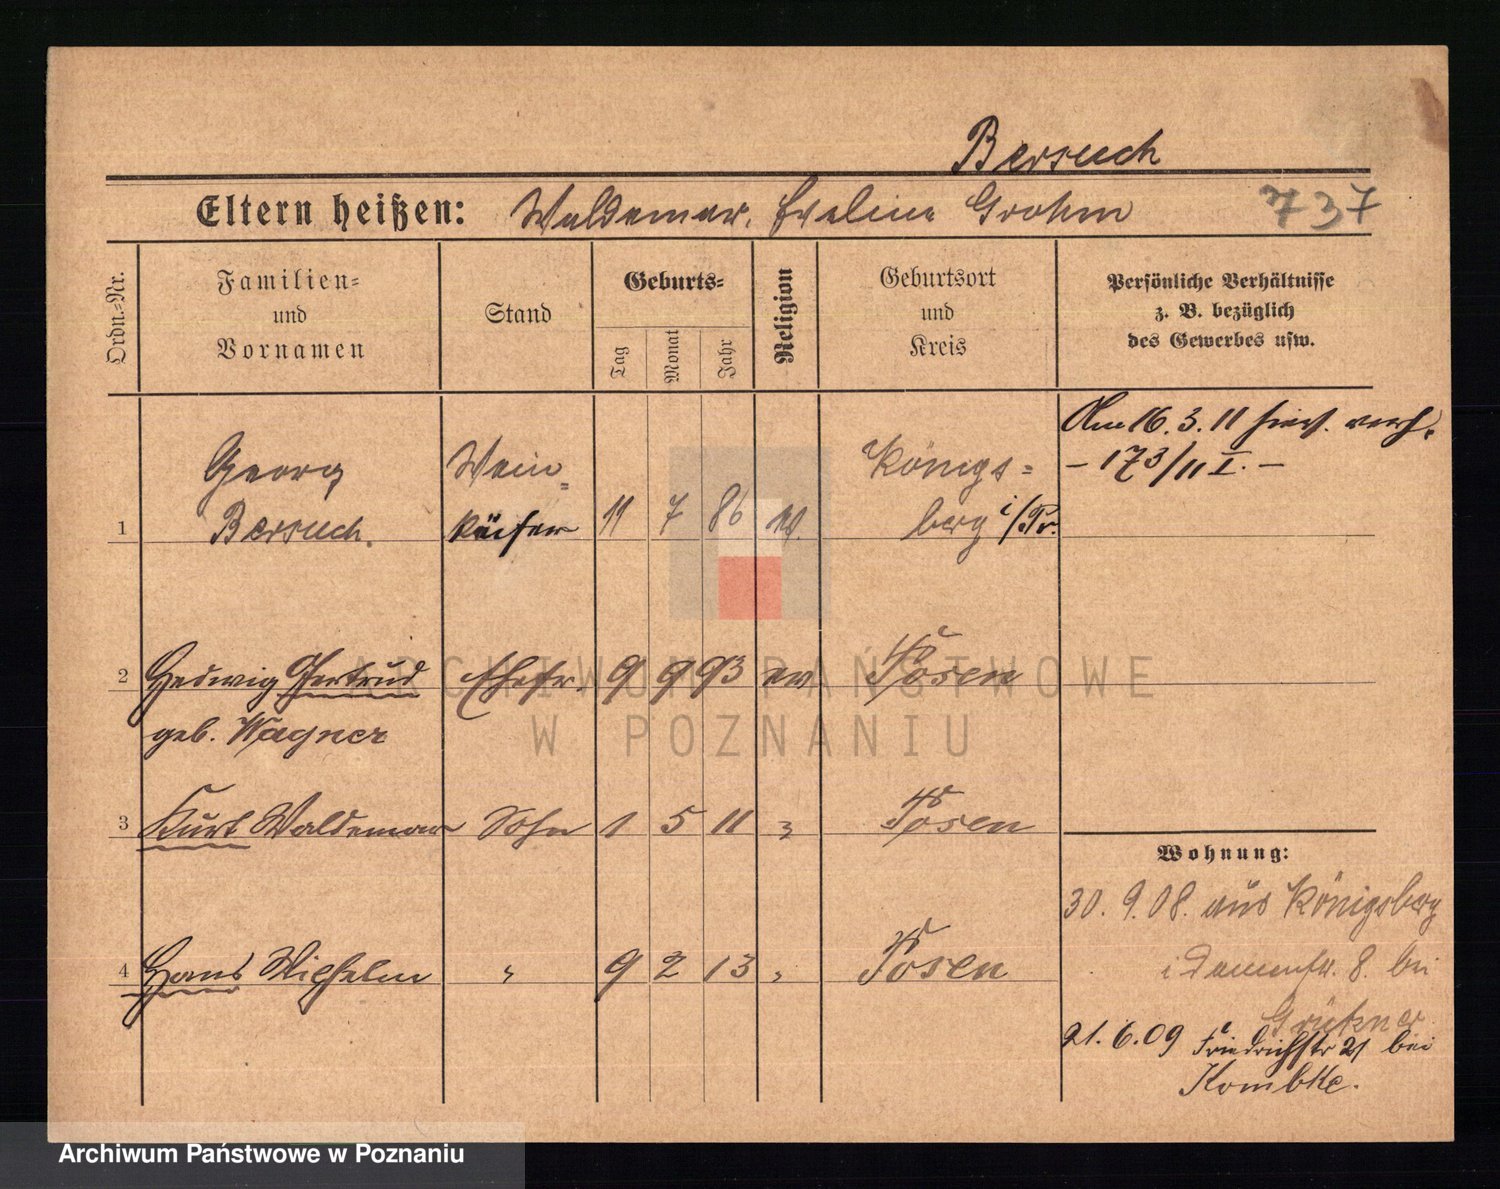 Bersuch
Eltern heißen: Waldemar, Eveline Grohm 737
Ordn.=Nr.
Familien=
und
Vornamen
Stand
Geburts=
Tag
Monat
Jahr
Religion
Geburtsort
und
Kreis
Persönliche Verhältnisse
z. B. bezüglich
des Gewerbes usw.
Am 16. 3. 11 hier. verh.
- 173/11 I. -
Georg Wein= Königs=
1 Bersuch. küfer 11 7 86 berg i/Pr.
2 Hedwig Gertrud Ehefr. 9 9 93 ev Posen
geb. Wagner
3 Kurt Waldemar Sohn 1 5 11 " Posen
Wohnung:
30. 9. 08. aus Königsberg
8. bei
4 Hans Wilhelm " 9 2 13 " Posen
21. 6. 09 Friedrichstr 21 bei
Kombke.
ARCHIWUM PAŃSTWOWE
W POZNANIU
Archiwum Państwowe w Poznaniu